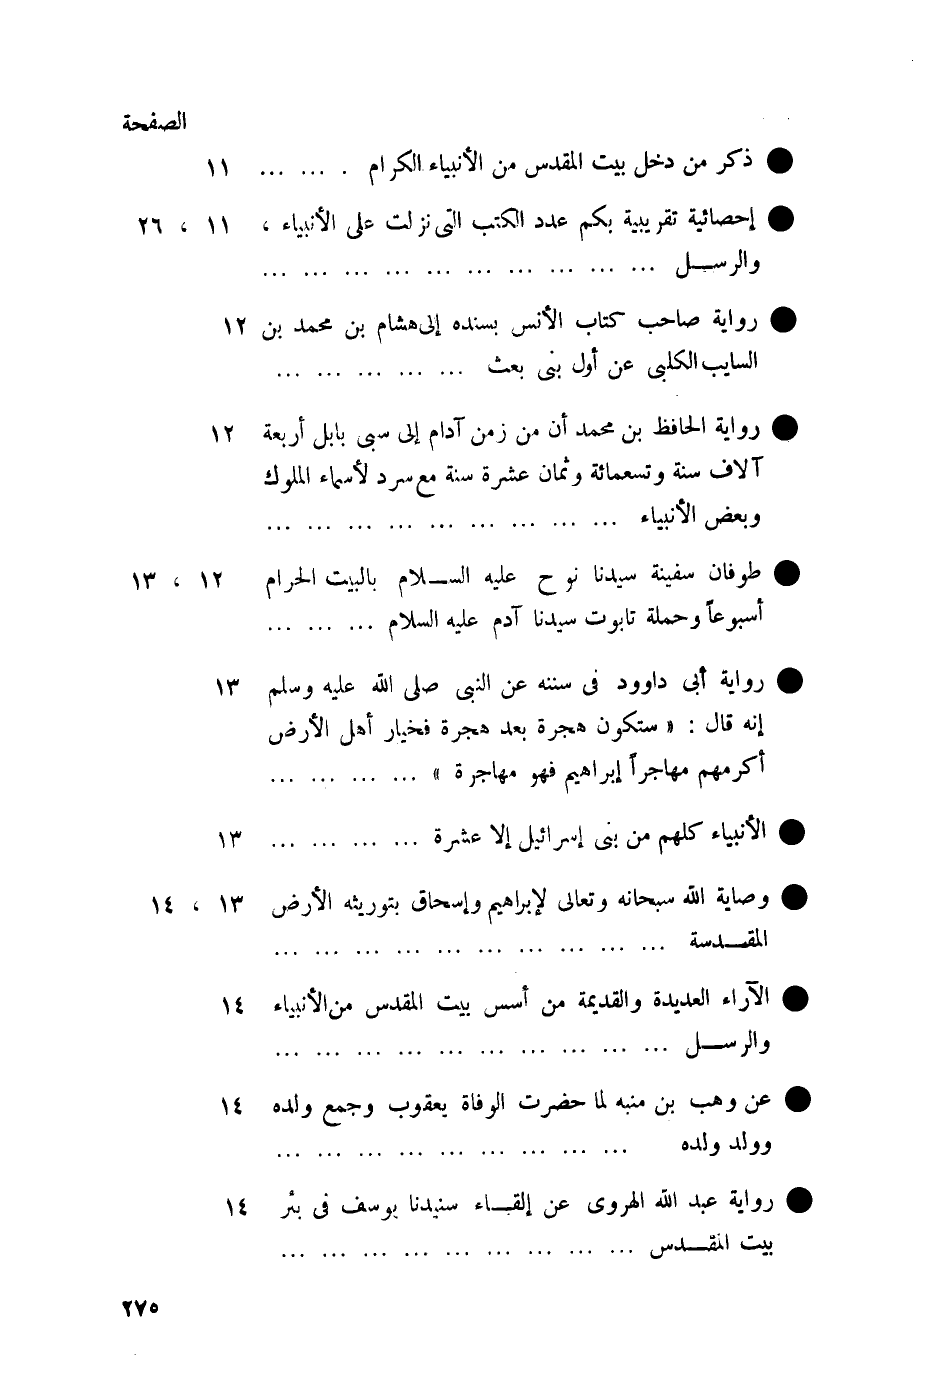 الصفحة
● ذكر من دخل بيت المقدس من الأنبياء الكرام . ... ... ١١
● إحصائية تقريبية بكم عدد الكتب التى نزلت على الأنبياء ، ١١ ، ٢٦
والرســل ... ... ... ... ... ... ... ... ... ...
● رواية صاحب كتاب الأنس بسنده إلى هشام بن محمد بن ١٢
السايب الكلبى عن أول بنى بعث ... ... ... ... ...
● رواية الحافظ بن محمد أن من زمن آدام إلى سبى بابل أربعة ١٢
آلاف سنة وتسعمائة وثمان عشرة سنة مع سرد لأسماء الملوك
وبعض الأنبياء ... ... ... ... ... ... ... ... ...
● طوفان سفينة سيدنا نوح عليه الســلام بالبيت الحرام ١٢ ، ١٣
أسبوعاً وحملة تابوت سيدنا آدم عليه السلام ... ... ...
● رواية أبى داوود فى سننه عن النبى صلى الله عليه وسلم ١٣
إنه قال : « ستكون هجرة بعد هجرة فخيار أهل الأرض
أكرمهم مهاجراً إبراهيم فهو مهاجرة » ... ... ... ...
● الأنبياء كلهم من بنى إسرائيل إلا عشرة ... ... ... ... ١٣
● وصاية الله سبحانه وتعالى لإبراهيم وإسحاق بتوريثه الأرض ١٣ ، ١٤
المقــدسة ... ... ... ... ... ... ... ... ... ...
● الآراء العديدة والقديمة من أسس بيت المقدس من الأنبياء ١٤
والرســل ... ... ... ... ... ... ... ... ... ...
● عن وهب بن منبه لما حضرت الوفاة يعقوب وجمع ولده ١٤
وولد ولده ... ... ... ... ... ... ... ... ...
● رواية عبد الله الهروى عن إلقــاء سنيدنا يوسف فى بئر ١٤
بيت المقــدس ... ... ... ... ... ... ... ... ...
٢٧٥